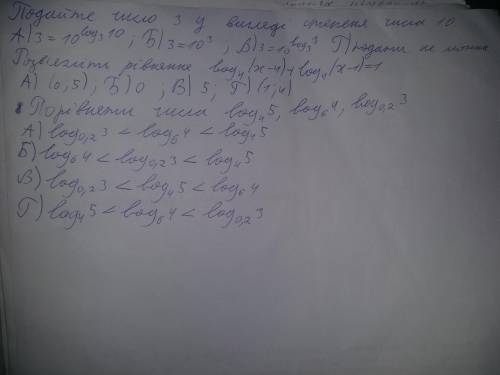 Подайте число 3 у вигляді степеня числа 10
А) 3 = 10^log₃10; Б) 3 = 10³; В) 3 = 10^lg3 Г) подати не можна
Розв'язати рівняння log₄(x-4)+log₄(x-1)=1
А) (0,5); Б) 0; В) 5; Г) (1,4)
Порівняти числа log₄5, log₆4, log₀,₂3
А) log₀,₂3 < log₆4 < log₄5
Б) log₆4 < log₀,₂3 < log₄5
В) log₀,₂3 < log₄5 < log₆4
Г) log₄5 < log₆4 < log₀,₂3